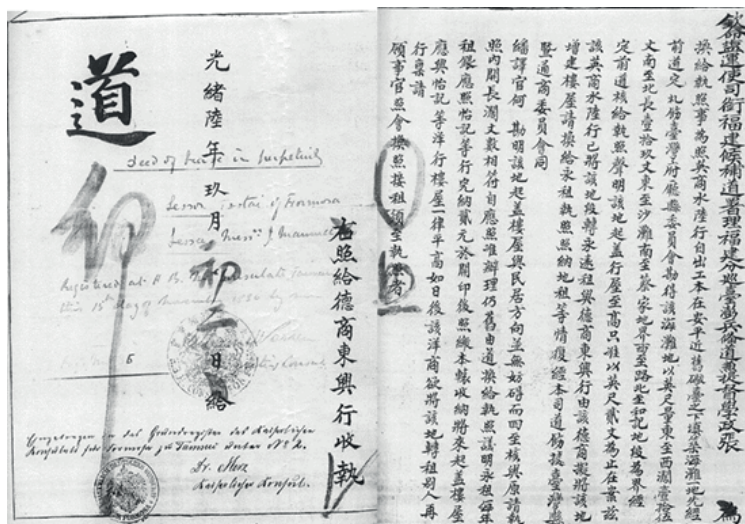 欽命鹽運使司銜福建候補道署理福建分巡臺澎兵備道兼提督學政張 為
換給執照事為照英商水陸行自出工本在安平近舊砲臺之下填築海灘一地先經
前道定札飭臺灣府廳縣委員會勘得該海灘地以英尺量東至西濶壹拾
丈南至北長壹拾玖丈東至沙灘南至蔡家地界西至路北至和記地段為界經
定前道核給執照聲明該地起蓋行屋至高只准以英尺貳丈為止在案茲
該英商水陸行已將該地段轉永遠租與德商東興行由該德商擬將該地
增建樓屋請換給永租執照照納地租等情復經本司道飭據臺灣縣
暨通商委員會同
繙譯官何 勘明該地起蓋樓屋與民居方向並無妨碍而四至核與原請執
照內開長濶丈數相符自應照准辦理仍舊由道換給執照議明永租每年
租銀應照怡記等行完納貳元於開印後照繳本轅收納將來起蓋樓屋
應與怡記等洋行樓屋一律平高如日後該洋商欲將該地轉租別人再
行稟請
領事官照會換照接租須至執照者
右照給德商東興行收執
光緒陸年玖月初二日給
道
印
Deed of lease in perpetuity
Lessor Taotai of Formosa
Lessee Messrs J. Mannich
Registered at H. B. M. Consulate Tainan
this 15th day of November 1880 by me
6
Eingetragen in das Grundregister des Kaiserlichen
Konsulats für Formosa zu Tamsui unter No 2.
Dr. Merz
Kaiserlicher Konsul.